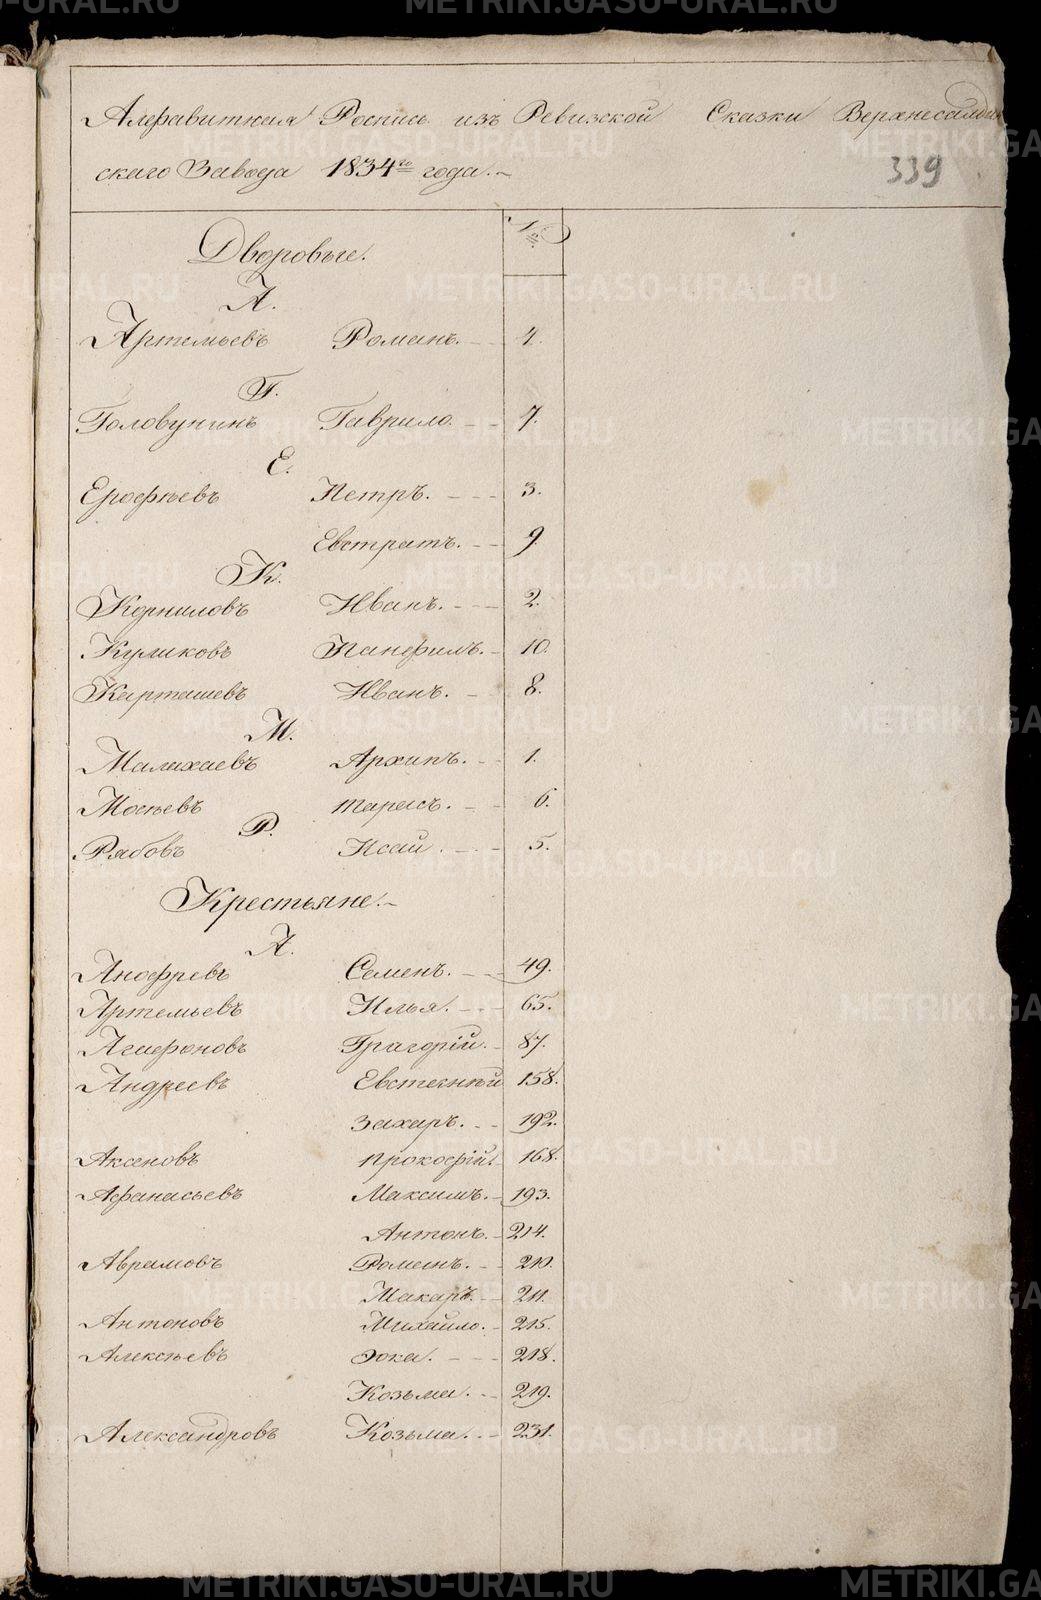 Алфавитная Роспись изъ Ревизской Сказки Верхнесалдин
скаго Завода 1834го года.
339
Дворовые.
№
А.
Артемьевъ Романъ. 4.
Г.
Головунинъ Гаврило 7.
Е.
Ерофѣевъ Петръ. 3.
Евстратъ. 9.
К.
Корниловъ Иванъ. 2.
Куликовъ Панфилъ. 10.
Карташевъ Иванъ. 8.
М.
Малахаевъ Архипъ. 1.
Мосѣевъ Тарасъ. 6.
Р.
Рябовъ Исай. 5.
Крестьяне.
А.
Анофревъ Семенъ. 49.
Артемьевъ Илья. 65.
Агафоновъ Григорій. 87.
Андреевъ Евстегнѣй 158.
Захаръ. 192.
Аксеновъ Прокофій. 168.
Афанасьевъ Максимъ. 193.
Антонъ. 214.
Аврамовъ Романъ. 210.
Макаръ. 211.
Антоновъ Михайло. 215.
Алексѣевъ Фока. 218.
Козьма. 219.
Александровъ Козьма. 231.
METRIKI.GASO-URAL.RU